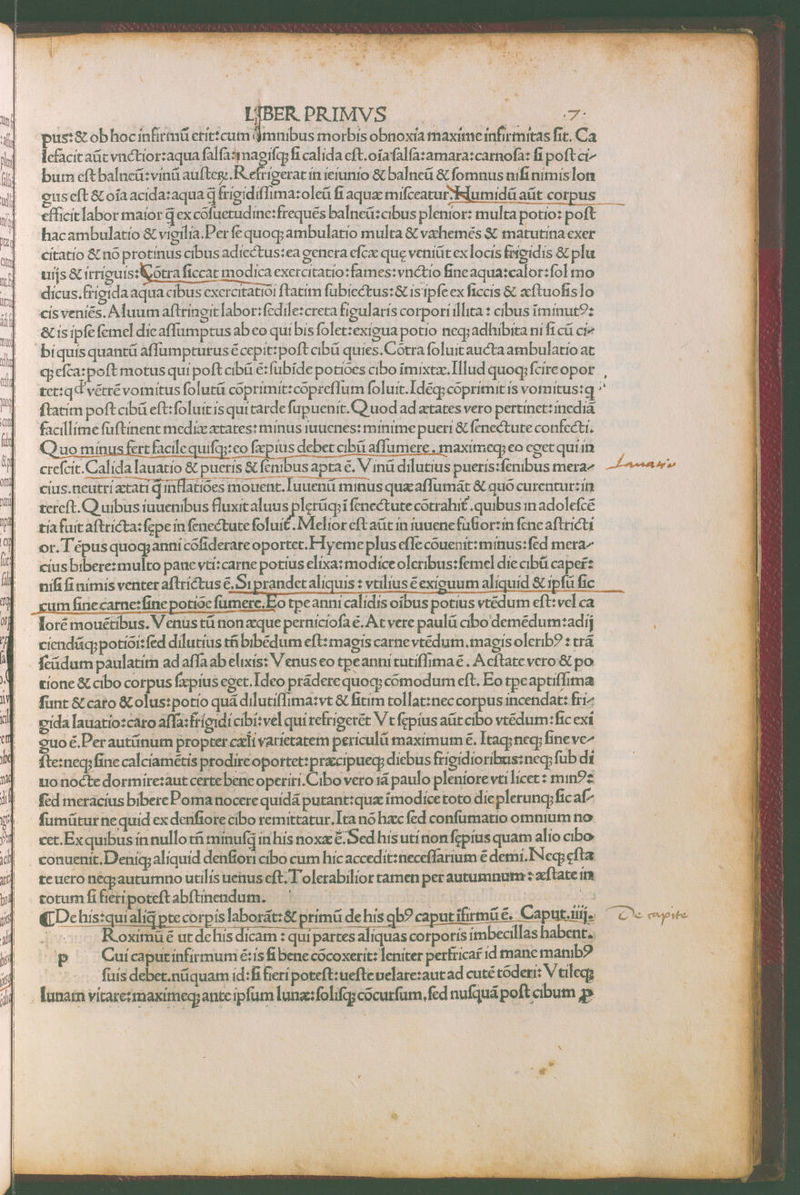 LIBER PRIMVS 7.
pus:& ob hoc infirmū erit:cum omnibus morbis obnoxia maxime infirmitas sit. Ca
lefacit aūt vnctior:aqua salsa:magisq; si calida est.oīa salsa:amara:carnosa: si post ci-
bum est balneū:vinū austeꝝ.Refrigerat in ieiunio & balneū & somnus nisi nimis lon
gus est & oīa acida:aqua q̄ frigidissima:oleū si aquæ misceatur.Humidū aūt corpus
efficit labor maior q̄ ex cōsuetudine:frequēs balneū:cibus plenior: multa potio: post
hac ambulatio & vigilia.Per se quoq; ambulatio multa & væhemēs & matutina exer
citatio & nō protinus cibus adiectus:ea genera escæ quę veniūt ex locis frigidis & plu
uijs & irriguis:Cōtra siccat modica exercitatio:fames:vnctio sine aqua:calor:sol mo
dicus.frigida aqua cibus exercitatiōi statim subiectus:& is ipse ex siccis & æstuosis lo
cis veniēs.Aluum astringit labor:sedile:creta figularis corpori illita : cibus iminutꝰ:
& is ipse semel die assumptus ab eo qui bis solet:exigua potio neq; adhibita ni si cū ci-
bi quis quantū assumpturus ē cepit:post cibū quies.Cōtra soluit aucta ambulatio at
q; esca:post motus qui post cibū ē:subide potiōes cibo imixtæ.Illud quoq; scire opor
tet:qđ vētrē vomitus solutū cōprimit:cōpressum soluit.Idēq; cōprimit is vomitus:q
statim post cibū est:soluit is qui tarde supuenit.Quod ad ætates vero pertinet:inediā
facillime sustinent mediæ ætates: minus iuuenes: minime pueri & senectute confecti.
Quo minus fert facile quisq;:eo sæpius debet cibū assumere. maximeq; eo eget qui in
crescit.Calida lauatio & pueris & senibus apta ē. Vinū dilutius pueris:senibus mera-
cius.neutri ætati q̄ inflatiōes mouent.Iuuenū minus quæ assumāt & quō curentur:in
terest.Quibus iuuenibus fluxit aluus plerūq; ī senectute cōtrahit̄.quibus in adolescē
tia fuit astricta:sępe in senectute soluit̄.Melior est aūt in iuuene fusior:in sene astricti
or.Tēpus quoq; anni cōsiderare oportet.Hyeme plus esse cōuenit:minus:sed mera-
cius bibere:multo pane vti:carne potius elixa:modice oleribus:semel die cibū caper̄:
nisi si nimis venter astrictus ē.Si prandet aliquis : vtilius ē exiguum aliquid & ipsū sic
cum sine carne:sine potiōe sumere.Eo tpe anni calidis oībus potius vtēdum est:vel ca
lorē mouētibus.Venus tū non æque perniciosa ē.At vere paulū cibo demēdum:adij
ciendūq; potiōi:sed dilutius tn̄ bibēdum est:magis carne vtēdum.magis oleribꝰ : trā
seūdum paulatim ad assa ab elixis: Venus eo tpe anni tutissima ē. Aestate vero & po
tione & cibo corpus sæpius eget.Ideo prādere quoq; cōmodum est. Eo tpe aptissima
sunt & caro & olus:potio quā dilutissima:vt & sitim tollat:nec corpus incendat: fri-
gida lauatio:caro assa:frigidi cibi:vel qui refrigerēt Vt sępius aūt cibo vtēdum:sic exi
guo ē.Per autūnum propter cæli varietatem periculū maximum ē. Itaq; neq; sine ve-
ste:neq; sine calciamētis prodire oportet:præcipueq; diebus frigidioribus:neq; sub di
uo nocte dormire:aut certe bene operiri.Cibo vero iā paulo pleniore vti licet : minꝰ:
sed meracius bibere Poma nocere quidā putant:quæ imodice toto die plerunq; sic as-
sumūtur ne quid ex densiore cibo remittatur.Ita nō hæc sed consumatio omnium no
cet.Ex quibus in nullo tn̄ minusq̄ in his noxæ ē.Sed his uti non sępius quam alio cibo
conuenit.Deniq; aliquid densiori cibo cum hic accedit:necessarium ē demi.Neq; æsta
te uero neq; autumno utilis uenus est.Tolerabilior tamen per autumnum : æstate in
totum si fieri potest abstinendum.
Lauatio
¶De his:qui aliq̄ pte corpis laborāt:& primū de his qbꝰ caput ifirmū ē. Caput.iiij.
De capite
p Roximū ē ut de his dicam : qui partes aliquas corporis imbecillas habent.
Cui caput infirmum ē:is si bene cōcoxerit: leniter perfricar̄ id mane manibꝰ
suis debet.nūquam id:si fieri potest:ueste uelare:aut ad cutē tōderi: Vtileq;
lunam vitare:maximeq; ante ipsum lunæ:solisq; cōcursum.sed nusquā post cibum ꝓ